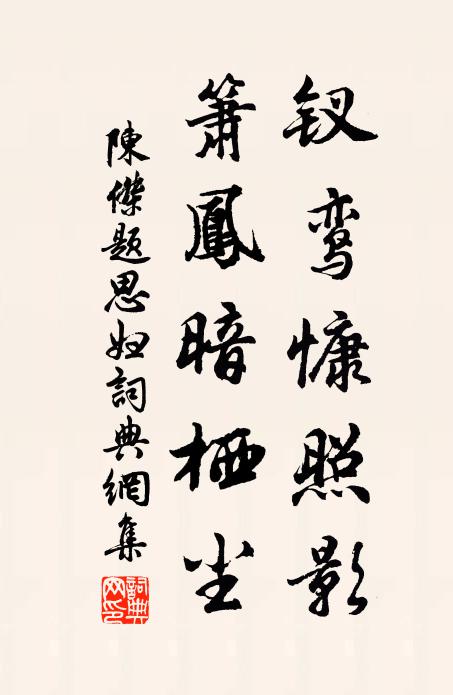 钗鸾慵照影
箫鳳暗栖尘
陳傑題思婦詞典網集
詞典网印